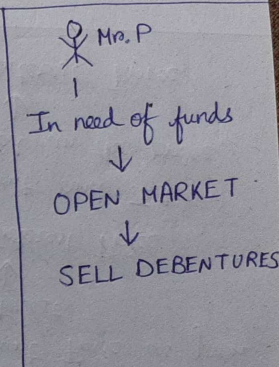 Mr. P
In need of funds
OPEN MARKET
SELL DEBENTURES